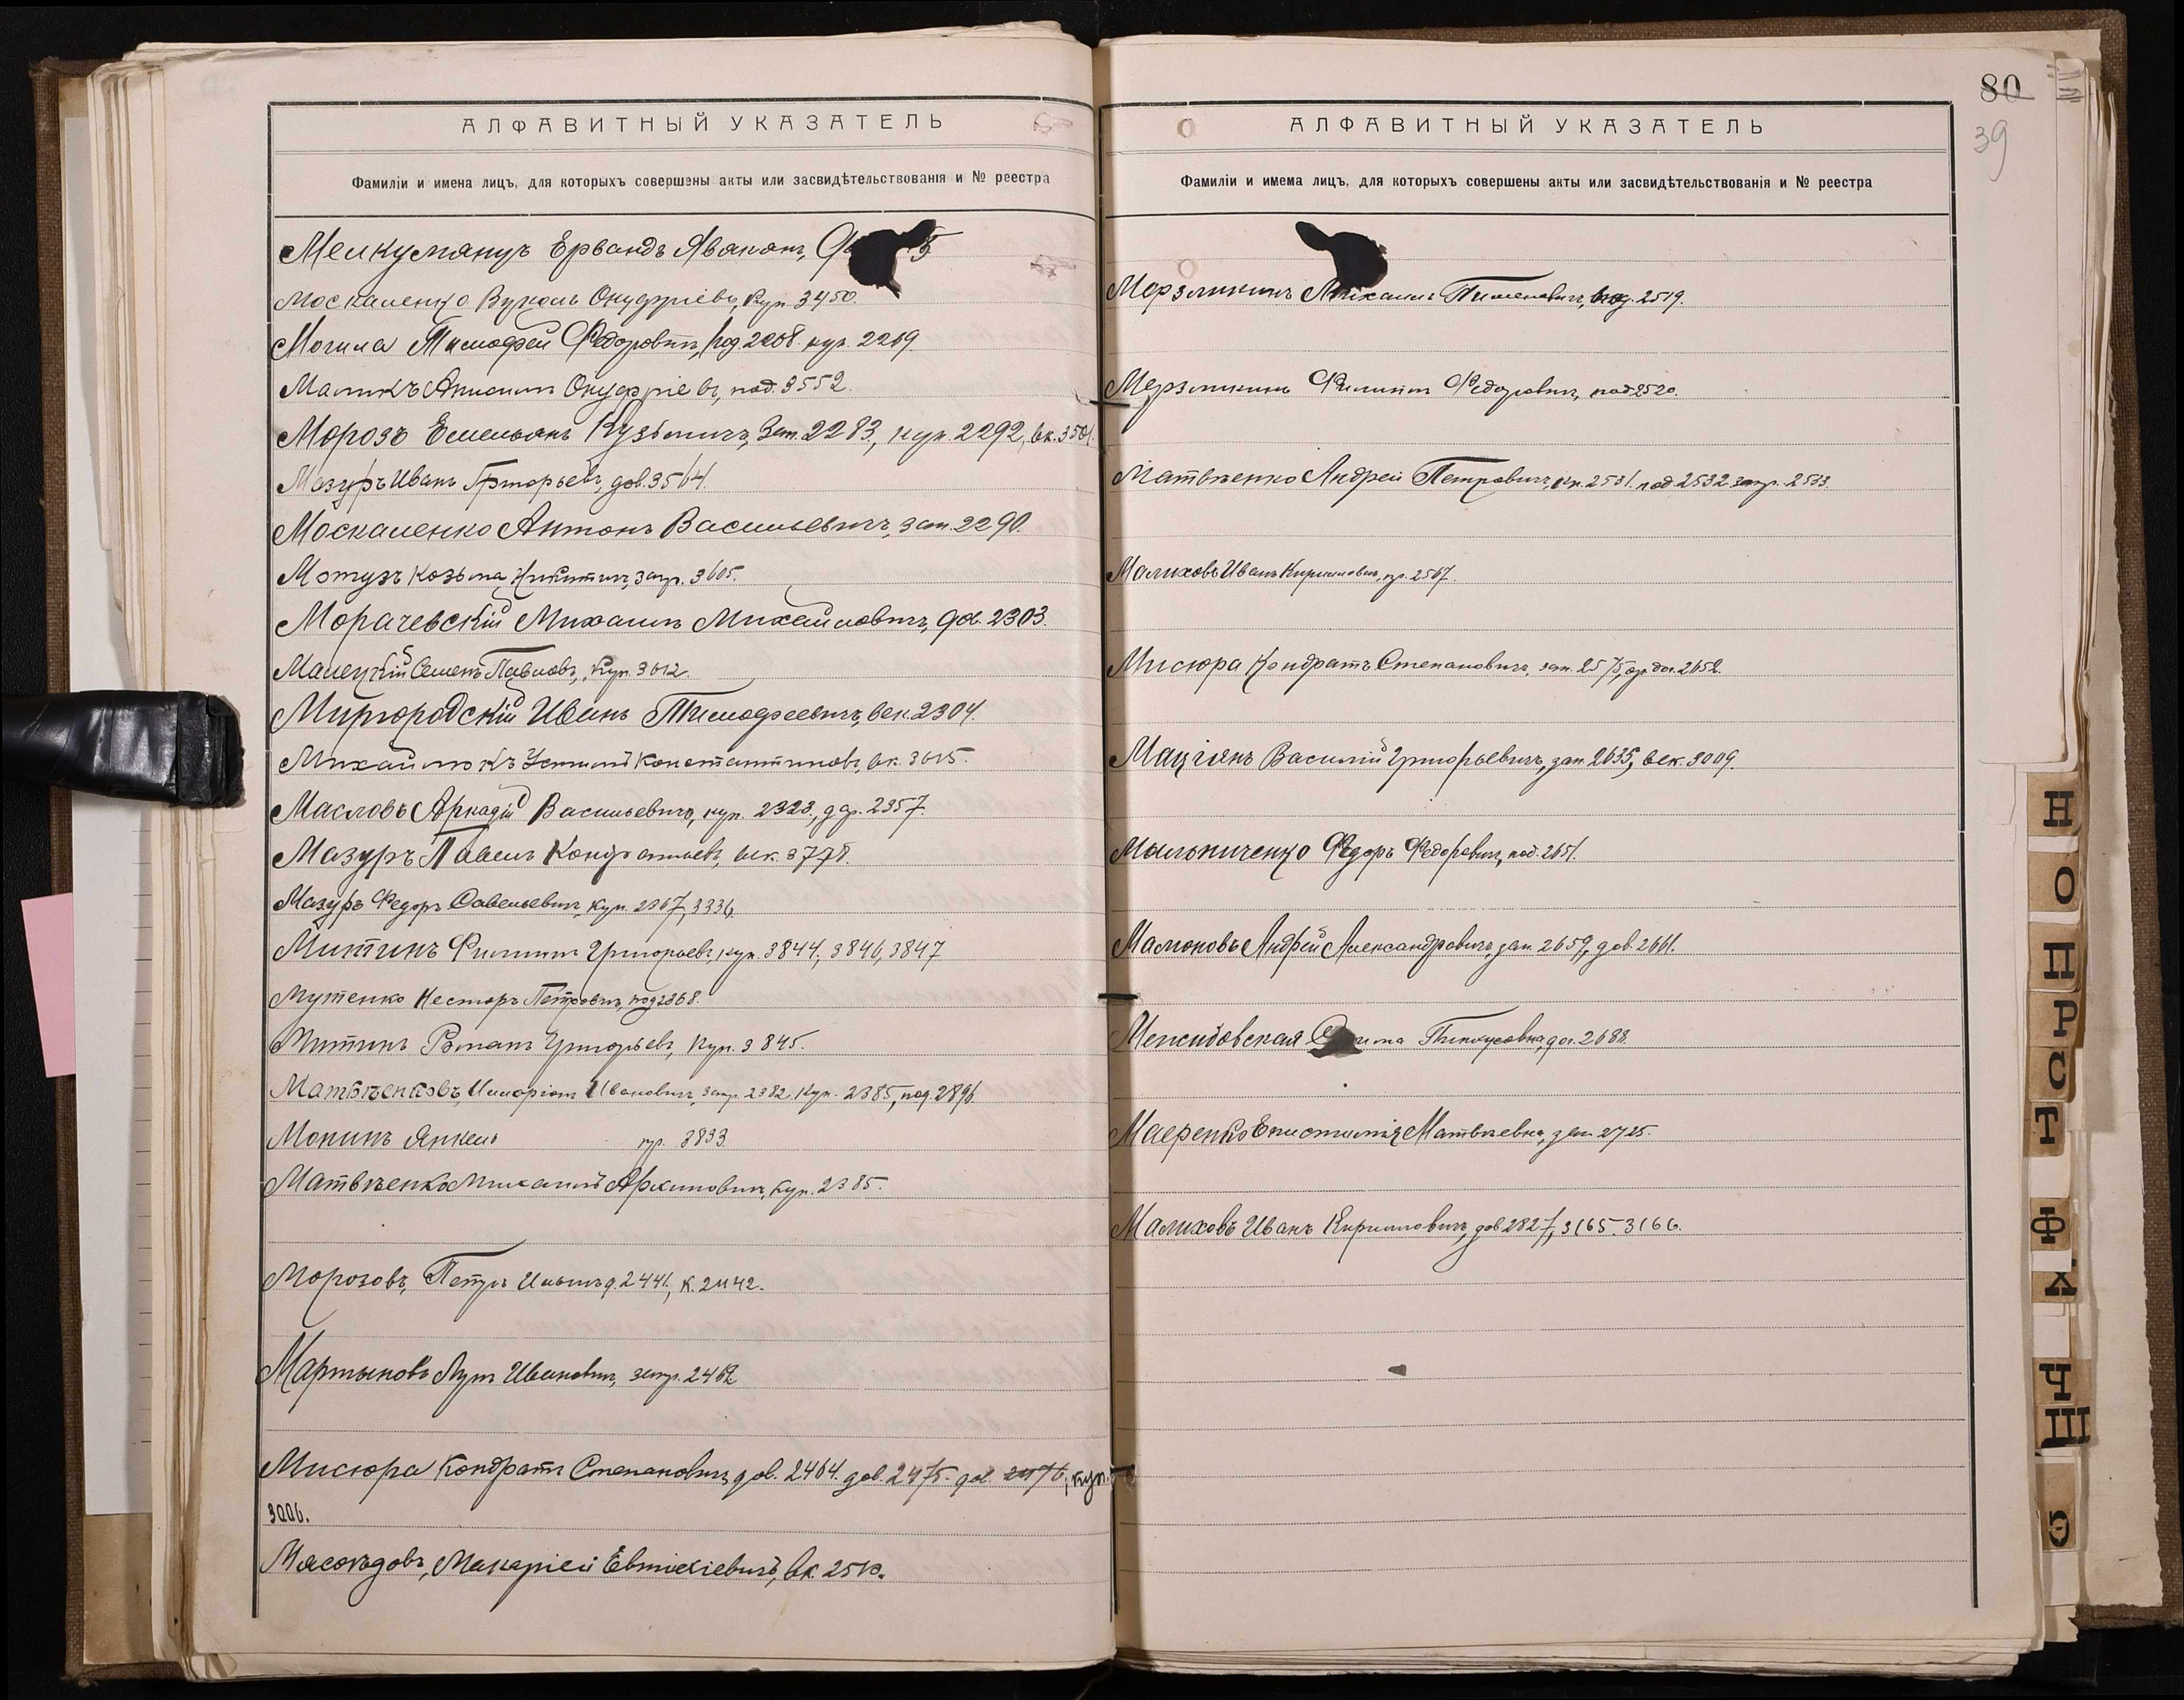 АЛФАВИТНЫЙ УКАЗАТЕЛЬ
Фамиліи и имена лицъ, для которыхъ совершены акты или засвидѣтельствованія и № реестра
Мелкумянцъ Ервандъ Авакянъ,
Москаленко Вуколъ Онуфріевъ, куп. 3450.
Могила Тимофей Федоровичъ, под. 2268. куп. 2269
Маликъ Анисимъ Онуфріевъ, под. 3552.
Морозъ Емельянъ Кузьмичъ, Зап. 2283, куп. 2292, вк. 3501.
Мазуръ Иванъ Григорьевъ, дов. 3564.
Москаленко Антонъ Васильевичъ, зап. 2290.
Мотузъ Козьма Никитичъ, запр. 3605.
Морачевскій Михаилъ Михайловичъ, дов. 2303.
Малецкій Семенъ Павловъ, куп. 3612.
Миргородскій Иванъ Тимофеевичъ, век. 2304.
Михайлюкъ Устинъ Константиновъ, вк. 3615.
Масловъ Аркадій Васильевичъ, куп. 2323, дар. 2357.
Мазуръ Павелъ Кондратьевъ, век. 3778.
Мазуръ Федоръ Савельевичъ, куп. 2367, 3336,
Митинъ Филиппъ Григорьевъ, куп. 3844, 3846, 3847
Мутенко Несторъ Петровичъ, под 2368.
Митинъ Романъ Григорьевъ, куп. 3845.
Матвѣенковъ, Иларіонъ Ивановичъ, запр. 2382. Куп. 2385, под. 2896.
Монинъ Янкель пр. 3833.
Матвѣенко Михаилъ Архиповичъ, куп. 2385.
Морозовъ, Петръ Ильичъ д. 2441, к. 2442.
Мартыновъ Лупъ Ивановичъ, запр. 2462
Мисюра Кондратъ Степановичъ дов. 2464. дов. 2475. дов. 2476, куп.
3006.
Мясоѣдовъ, Макарій Евтихіевичъ, вк. 2510.
80
39
АЛФАВИТНЫЙ УКАЗАТЕЛЬ
Фамиліи и имема лицъ, для которыхъ совершены акты или засвидѣтельствованія и № реестра
Мерзликинъ Михаилъ Пименовичъ, 2519.
Мерзликинъ Филиппъ Федоровичъ, под 2520.
Матвѣенко Андрей Петровичъ, куп. 2531. под 2532 запр. 2533.
Малиховъ Иванъ Кирилловичъ, пр. 2567.
Мисюра Кондратъ Степановичъ, зап. 2575, 2652.
Мацгянъ Василій Григорьевичъ, зап. 2635, век. 3009.
Мыльниченко Федоръ Федоровичъ, под. 2651.
Мамоновъ Андрей Александровичъ, зап. 2659, дов. 2661.
Менсидовская Пинхусовна, дог. 2688.
Маеренко Епистимія Матвѣевна, зап. 2725.
Малиховъ Иванъ Кирилловичъ, дов. 2827, 3165. 3166.
Н
О
П
Р
С
Т
Ф
Х
Ч
Ш
Э